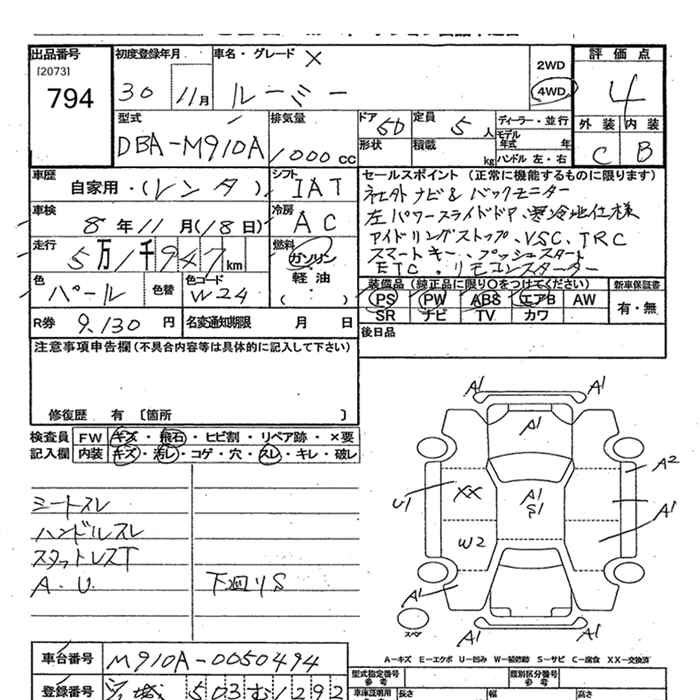 出品番号 [2073] 794
初度登録年月 30 11月
車名・グレード X
ルーミー
2WD
4WD
評価点 4
外装 内装
C B
型式 DBA-M910A
排気量 1000 cc
ドア 5D 定員 5 人
形状 積載 kg
ディーラー・並行
モデル年式 年
ハンドル 左・右
車歴 自家用・(レンタ)
シフト IAT
車検 8年11月(18日)
冷房 AC
走行 5万1千947km
燃料 ガソリン
軽油
( ・ )
色 パール 色替 色コード W24
R券 9,130円 名変通知期限 月 日
セールスポイント (正常に機能するものに限ります)
社外ナビ&バックモニター
左パワースライドドア、寒冷地仕様
アイドリングストップ、VSC、TRC
スマートキー、プッシュスタート
ETC、リモコンスターター
装備品 (純正品に限り○をつけてください) 新車保証書
PS PW ABS エアB AW 有・無
SR ナビ TV カワ
後日品
注意事項申告欄 (不具合内容等は具体的に記入して下さい)
修復歴 有 〔箇所 〕
検査員 FW キズ・飛石・ヒビ割・リペア跡・×要
記入欄 内装 キズ・汚レ・コゲ・穴・スレ・キレ・破レ
シートスレ
ハンドルスレ
スタットレスT
A.U. 下廻りS
A1 A1
A1
A2
U1 XX A1 S1 A1
W2
A1
スペア
A1 A1
A-キズ E-エクボ U-凹み W-補修跡 S-サビ C-腐食 XX-交換済
車台番号 M910A-0050494
型式指定番号 類別区分番号
参考 参考
登録番号 503 む 1292
車庫証明用 長さ 幅 高さ